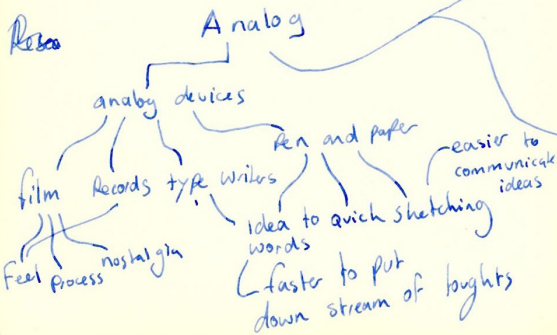 Analog
analog devices
Pen and paper
easier to
communicate
ideas
film
Records
type writers
Idea to
words
Quick sketching
Feel
Process
nostalgia
faster to put
down stream of toughts